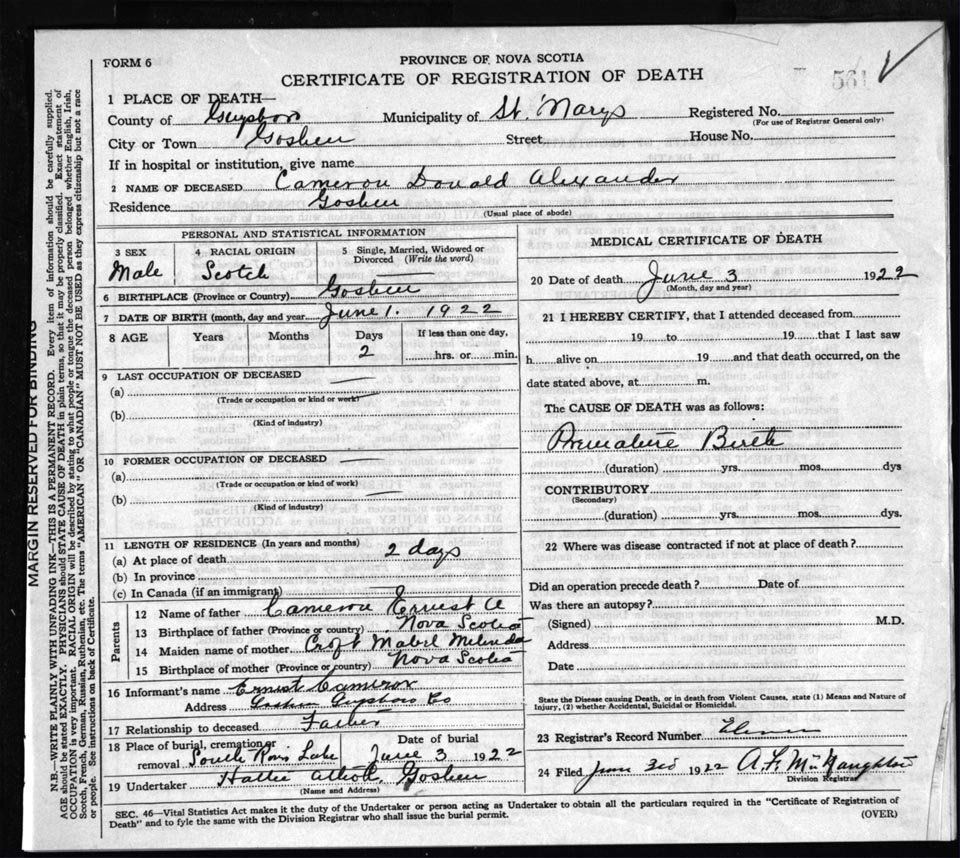 FORM 6
PROVINCE OF NOVA SCOTIA
CERTIFICATE OF REGISTRATION OF DEATH
561
1 PLACE OF DEATH—
County of Guysboro Municipality of St. Marys Registered No.
(For use of Registrar General only)
City or Town Goshen Street House No.
If in hospital or institution, give name
2 NAME OF DECEASED Cameron Donald Alexander
Residence Goshen
(Usual place of abode)
PERSONAL AND STATISTICAL INFORMATION
3 SEX 4 RACIAL ORIGIN 5 Single, Married, Widowed or Divorced (Write the word)
Male Scotch
6 BIRTHPLACE (Province or Country) Goshen
7 DATE OF BIRTH (month, day and year) June 1. 1922
8 AGE Years Months Days If less than one day,
2 hrs. or min.
9 LAST OCCUPATION OF DECEASED
(a)
(Trade or occupation or kind or work)
(b)
(Kind of industry)
10 FORMER OCCUPATION OF DECEASED
(a)
(Trade or occupation or kind of work)
(b)
(Kind of industry)
11 LENGTH OF RESIDENCE (In years and months)
(a) At place of death 2 days
(b) In province
(c) In Canada (if an immigrant)
Parents
12 Name of father Cameron Ernest A
13 Birthplace of father (Province or country) Nova Scotia
14 Maiden name of mother Croft Mabel Melinda
15 Birthplace of mother (Province or country) Nova Scotia
16 Informant's name Ernest Cameron
Address Goshen Guysboro Co
17 Relationship to deceased Father
18 Place of burial, cremation or removal South Lake Date of burial June 3 1922
19 Undertaker Hattie Goshen
(Name and Address)
MEDICAL CERTIFICATE OF DEATH
20 Date of death June 3 1922
(Month, day and year)
21 I HEREBY CERTIFY, that I attended deceased from
19 to 19 that I last saw
h alive on 19 and that death occurred, on the
date stated above, at m.
The CAUSE OF DEATH was as follows:
Premature Birth
(duration) yrs. mos. dys
CONTRIBUTORY
(Secondary)
(duration) yrs. mos. dys.
22 Where was disease contracted if not at place of death?
Did an operation precede death? Date of
Was there an autopsy?
(Signed) M.D.
Address
Date
State the Disease causing Death, or in death from Violent Causes, state (1) Means and Nature of
Injury, (2) whether Accidental, Suicidal or Homicidal.
23 Registrar's Record Number Eleven
24 Filed June 3rd 1922 A.F. McNaughton
Division Registrar
SEC. 46—Vital Statistics Act makes it the duty of the Undertaker or person acting as Undertaker to obtain all the particulars required in the "Certificate of Registration of
Death" and to fyle the same with the Division Registrar who shall issue the burial permit.
(OVER)
MARGIN RESERVED FOR BINDING
N.B.—WRITE PLAINLY WITH UNFADING INK—THIS IS A PERMANENT RECORD. Every item of information should be carefully supplied.
AGE should be stated EXACTLY. PHYSICIANS should STATE CAUSE OF DEATH in plain terms, so that it may be properly classified. Exact statement of
OCCUPATION is very important. RACIAL ORIGIN will be described by stating to what people or tongue the deceased person belonged whether English, Irish,
Scotch, French, German, Russian, Ruthenian, etc. The terms "AMERICAN" OR "CANADIAN" MUST NOT BE USED as they express citizenship but not a race
or people. See instructions on back of Certificate.